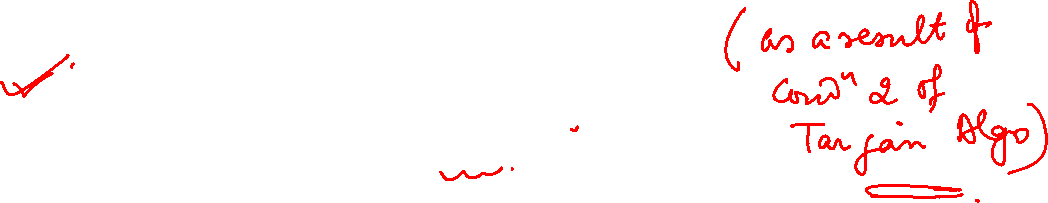 (as a result of
condⁿ 2 of
Tarjan Algo)